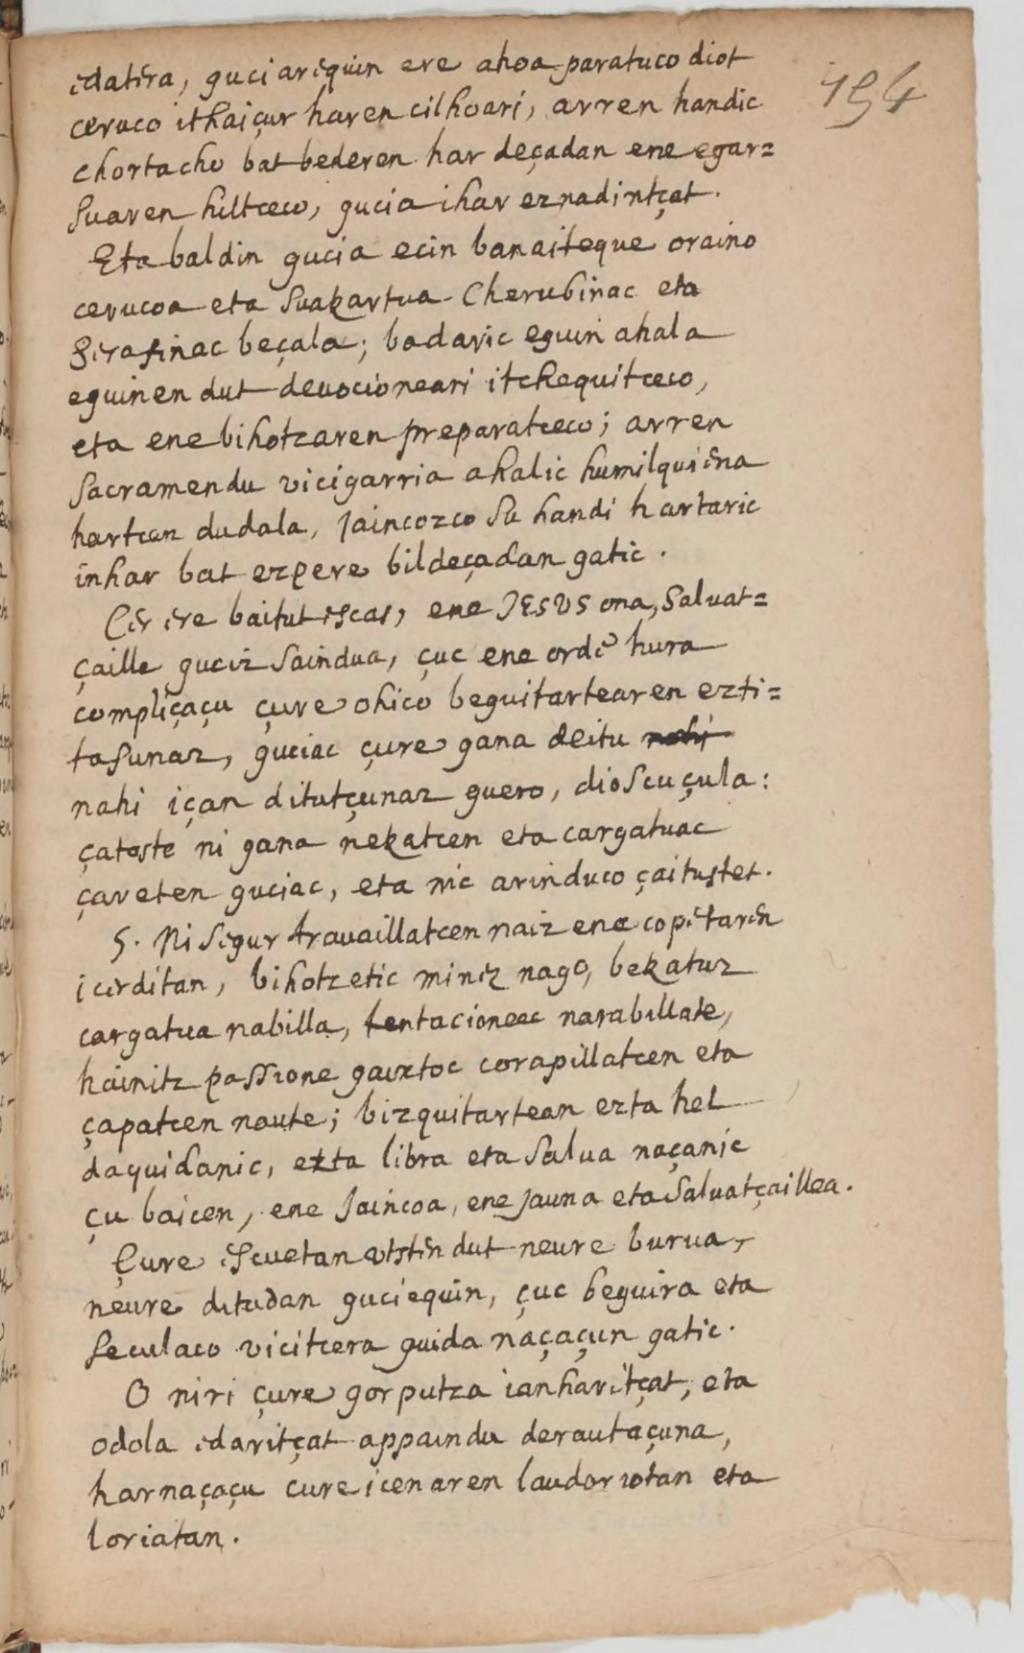 194
edatera, guciarequin ere ahoa paratuco diot
ceruco ithaiçur haren cilhoari, arren handic
chortacho bat bederen har deçadan ene egar=
suaren hiltceco, gucia ihar eznadintçat.
Eta baldin gucia ecin banaiteque oraino
cerucoa eta suakartua Cherubinac eta
Serafinac beçala; badaric eguin ahala
eguinen dut devocioneari itchequitceco,
eta ene bihotzaren preparatceco; arren
Sacramendu vicigarria ahalic humilquiena
hartcen dudala, Jaincozco su handi hartaric
inhar bat ezpere bildeçadan gatic.
Cer ere baitut escas, ene JESUS ona, Salvat=
çaille guciz Saindua, çuc ene ordē hura
compliçaçu çure ohico beguitartearen ezti=
tasunaz, guciac çure gana deitu nahi
nahi içan ditutçunaz guero, dioscuçula:
çatoste ni gana nekatcen eta cargatuac
çareten guciac, eta nic arinduco çaitustet.
5. Ni segur travaillatcen naiz ene copetaren
icerditan, bihotzetic minez nago, bekatuz
cargatua nabilla, tentacioneec narabillate,
hainitz passione gaixtoc corapillatcen eta
çapatcen naute; bizquitartean ezta hel
daquidanic, ezta libra eta salva naçanic
çu baicen, ene Jaincoa, ene Jauna eta Salvatçaillea.
Çure escuetan vtsten dut neure burua,
neure ditudan guciequin, çuc beguira eta
seculaco vicitcera guida naçaçun gatic.
O niri çure gorputza ianharitçat, eta
odola edaritçat appaindu derautaçuna,
har naçaçu çure icenaren laudoriotan eta
loriatan.